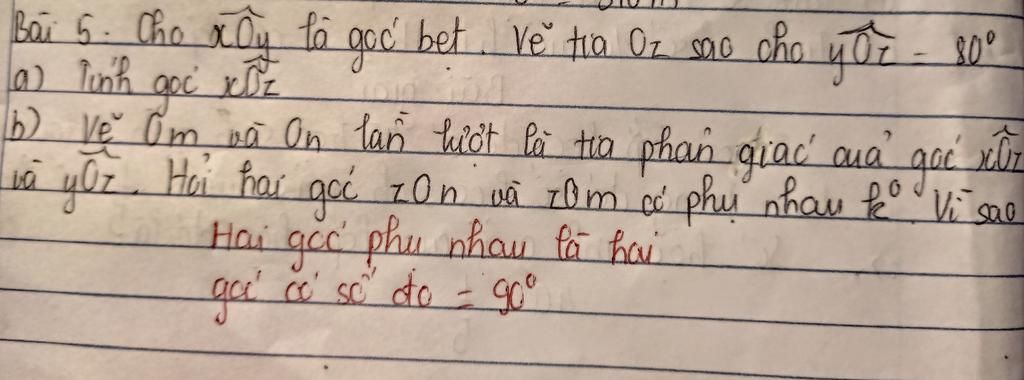 Bài 5. Cho xÔy là góc bẹt. Vẽ tia Oz sao cho yÔz = 80°
a) Tính góc xÔz
b) Vẽ Om và On lần lượt là tia phân giác của góc xÔz
và yÔz. Hỏi hai góc zOn và zOm có phụ nhau k°. Vì sao
Hai góc phụ nhau là hai
góc có số đo = 90°